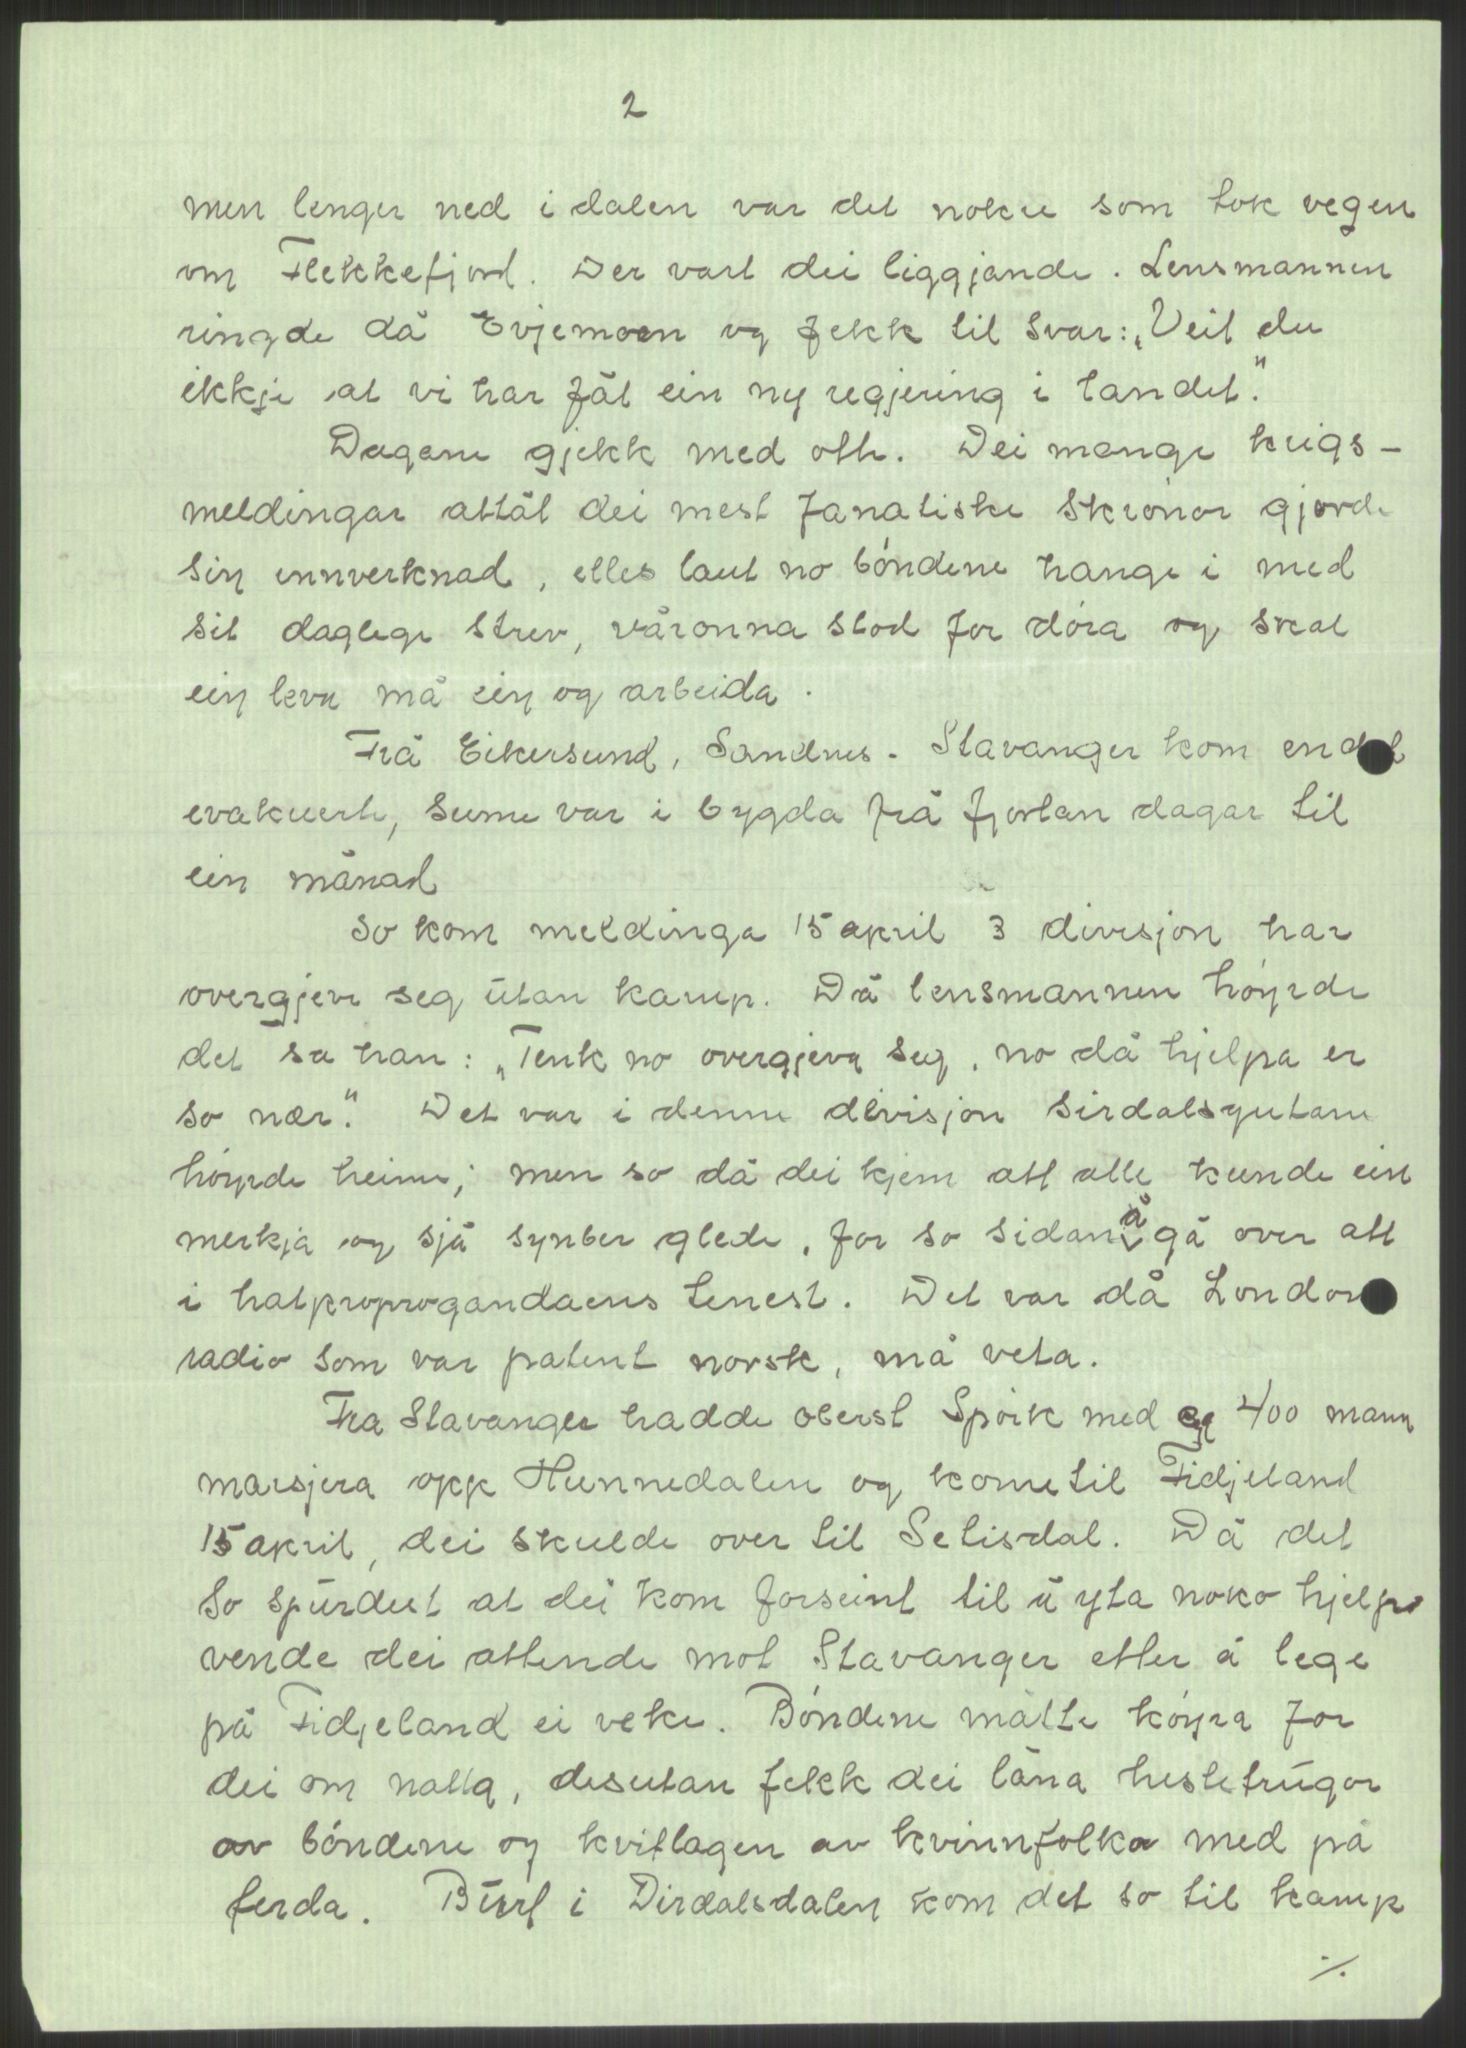 2
men lenger ned i dalen var det nokre som tok vegen
om Flekkefjord. Der vart dei liggjande. Lensmannen
ringde då Evjemoen og fekk til svar: „Veit du
ikkje at vi har fåt ein ny regjering i landet."
Dagane gjekk med otte. Dei mange krigs-
meldingar attåt dei mest fanatiske skrönor gjorde
sin innverknad, elles laut no böndene hange i med
sit daglege strev, våronna stod for döra og skal
ein leva må ein og arbeida.
Frå Eikersund, Sandnes - Stavanger kom endel
evakuerte, sume var i bygda frå fjortan dagar til
ein månad
So kom meldinga 15 april 3 divisjon har
overgjeve seg utan kamp. Då lensmannen höyrde
det sa han: „Tenk no overgjeva seg, no då hjelpa er
so nær." Det var i denne divisjon Sirdalsgutane
höyrde heime; men so då dei kjem att alle kunde ein
merkja og sjå synber glede, for so sidan å gå over att
i hatpropogandaens tenest. Det var då London
radio som var patent norsk, må veta.
Fra Stavanger hadde oberst Spörk med ca 400 mann
marsjera opp Hunnedalen og kome til Fidjeland
15 april, dei skulde over til Setisdal. Då det
so spurdest at dei kom forseint til å yta noko hjelp
vende dei attende mot Stavanger etter å lege
på Fidjeland ei veke. Böndene måtte köyra for
dei om natta, desutan fekk dei låna hestetrugor
av böndene og kvitlagen av kvinnfolka med på
ferda. Burt i Dirdalsdalen kom det so til kamp
./.